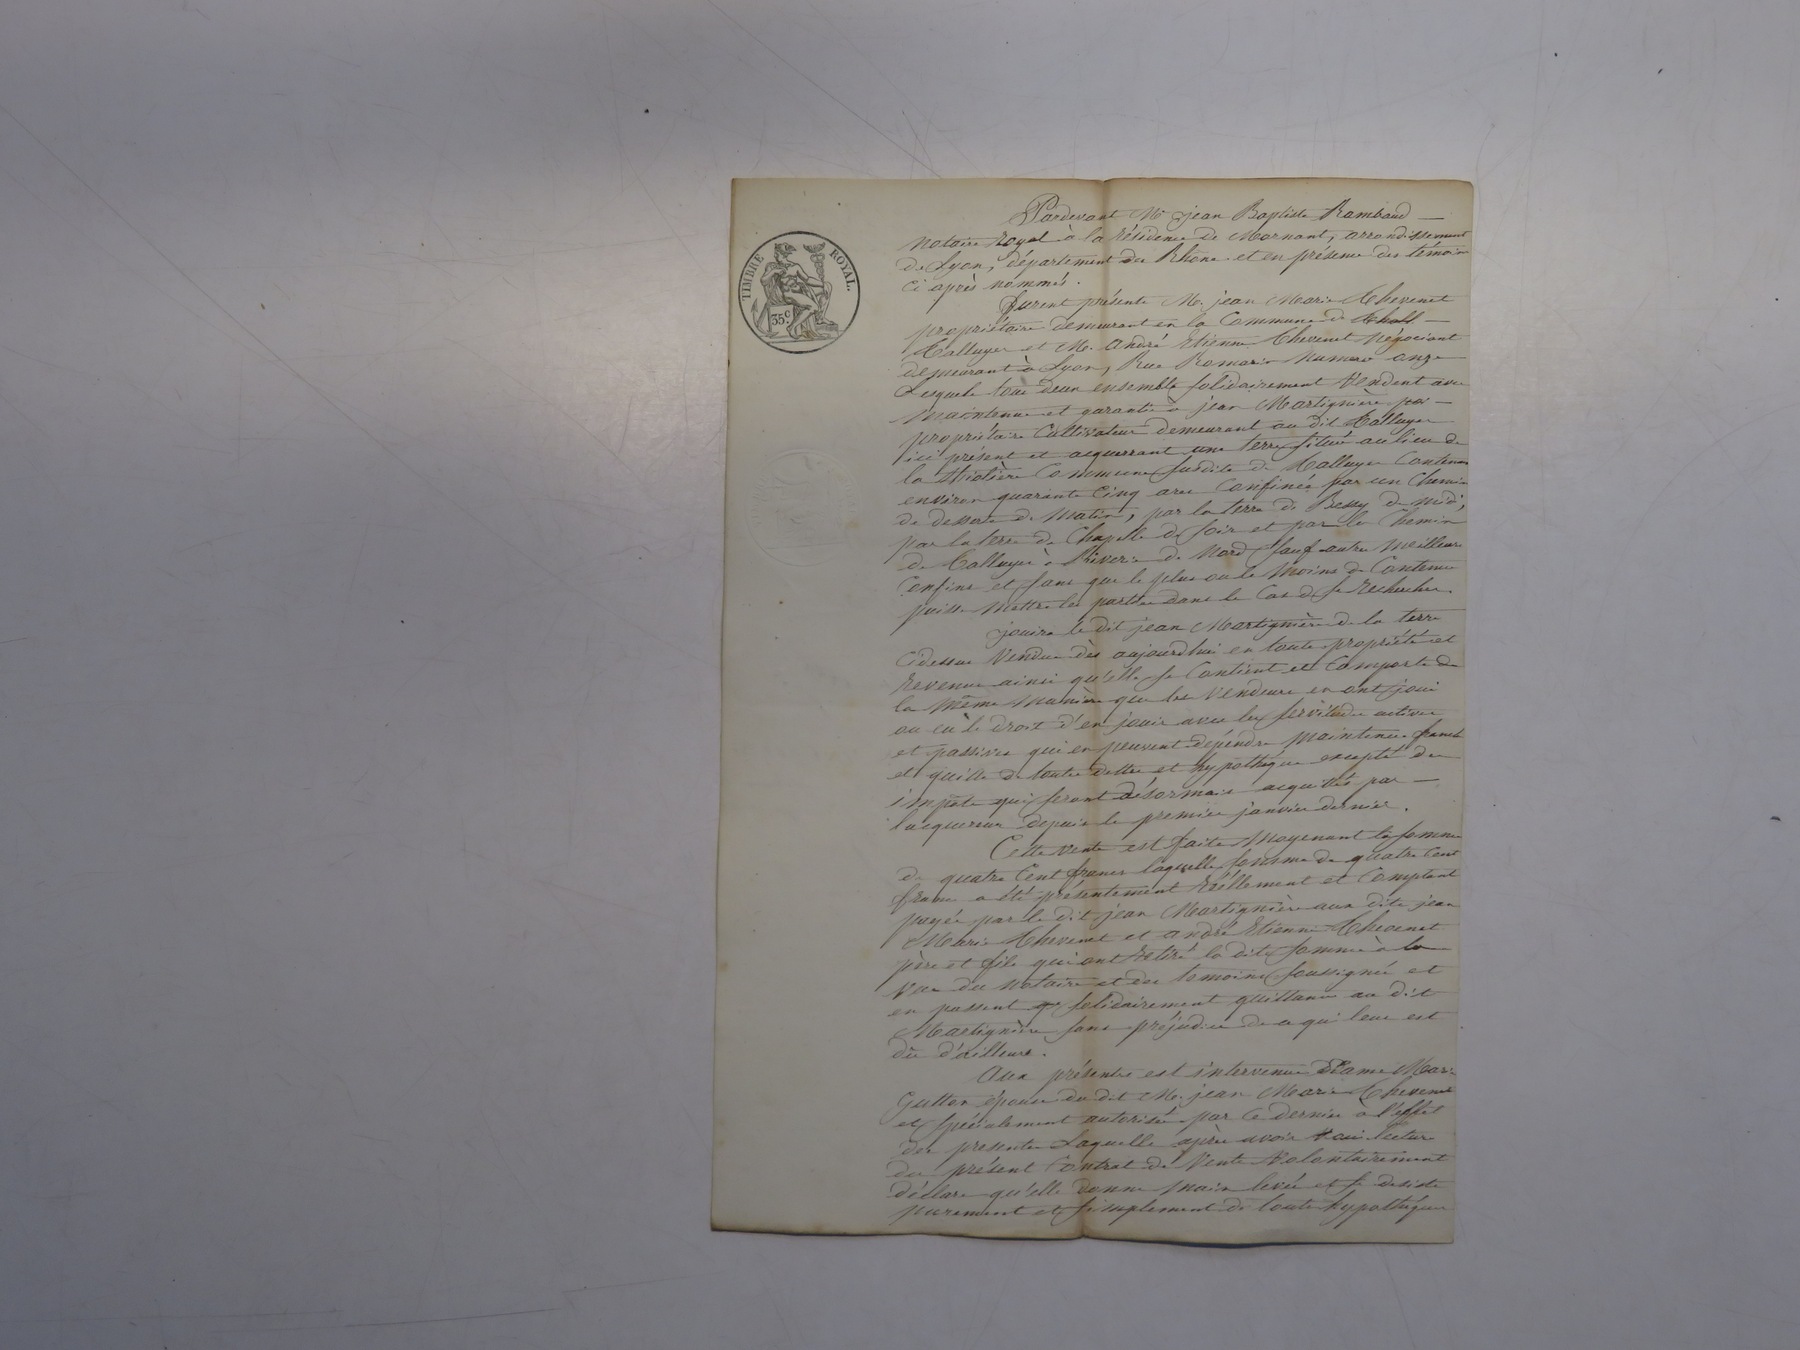 TIMBRE ROYAL.
35 c.
Pardevant Me jean Baptiste Rambaud —
notaire royal à la résidence de Mornant, arrondissement
de Lyon, département du Rhône et en présence des témoins
ci après nommés.
Furent présents M. jean Marie Thevenet
propriétaire demeurant en la Commune de
Talluyer et M. André Etienne Thevenet Négociant
demeurant à Lyon, Rue Romarin Numéro onze
Lesquels tous deux ensemble solidairement Vendent avec
Maintenue et garantie à jean Martignière —
propriétaire Cultivateur demeurant au dit Talluyer
ici présent et acquerrant une terre située au lieu de
la Commune susdite de Talluyer Contenant
environ quarante Cinq ares Confinée par un Chemin
de desserte de Matin, par la terre de Bessy de midi,
par la terre de Chapelle de soir et par le Chemin
de Talluyer à Riverie de Nord, sauf autres Meilleurs
Confins et sans que le plus ou le Moins de Contenue
puisse Mettre les parties dans le Cas de se Rechercher.
jouira le dit jean Martignière de la terre
Cidessus Vendue dès aujourdhui en toute propriété et
Revenus ainsi qu'elle se Contient et Comporte de
la Même Manière que les Vendeurs en ont joui
ou eû le droit d'en jouir avec les servitudes actives
et passives qui en peuvent dépendre Maintenue franche
et quitte de toutes dettes et hypothèques excepté des
impôts qui seront désormais acquittés par —
l'acquereur depuis le premier janvier dernier.
Cette Vente est faite Moyenant la somme
de quatre Cent francs laquelle somme de quatre Cent
francs a été présentement Réellement et Comptant
payée par le dit jean Martignière aux dits jean
Marie Thevenet et andré Etienne Thevenet
père et fils qui ont Retiré la dite somme à la
Vue du Notaire et des temoins soussignés et
en passent solidairement quittance au dit
Martignière sans préjudice de ce qui leur est
dû d'ailleurs.
Aux présentes est intervenue Dame Marie
Gutton épouse du dit M. jean Marie Thevenet
et spécialement autorisée par ce dernier à l'effet
des presentes Laquelle après avoir oui lecture
du présent Contrat de Vente Volontairement
déclare qu'elle donne Main levée et se desiste
purement et simplement de toutes hypothéques